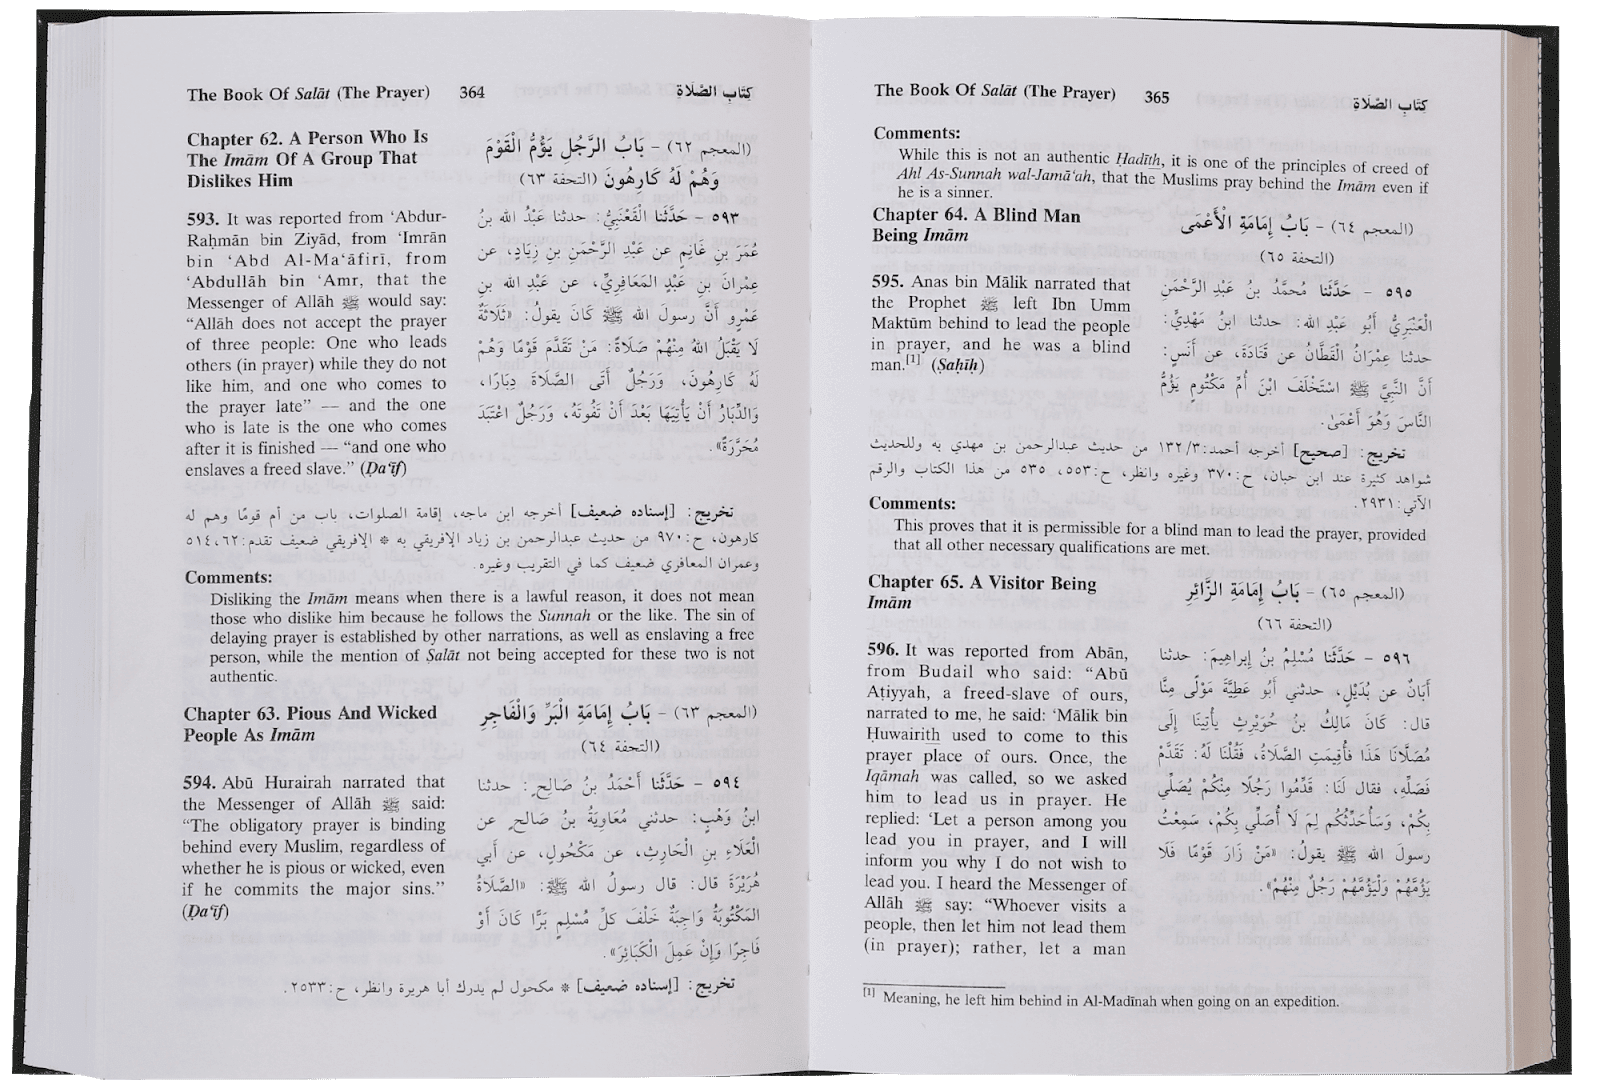 The Book Of Salāt (The Prayer) 364 كِتَابِ الصَّلَاةِ
Chapter 62. A Person Who Is
The Imām Of A Group That
Dislikes Him
(المعجم ٦٢) - بَابُ الرَّجُلِ يَؤُمُّ الْقَوْمَ
وَهُمْ لَهُ كَارِهُونَ (التحفة ٦٣)
593. It was reported from ‘Abdur-
Raḥmān bin Ziyād, from ‘Imrān
bin ‘Abd Al-Ma‘āfirī, from
‘Abdullāh bin ‘Amr, that the
Messenger of Allāh ﷺ would say:
“Allāh does not accept the prayer
of three people: One who leads
others (in prayer) while they do not
like him, and one who comes to
the prayer late” — and the one
who is late is the one who comes
after it is finished — “and one who
enslaves a freed slave.” (Ḍa‘īf)
٥٩٣ - حَدَّثَنا الْقَعْنَبِيُّ: حدثنا عَبْدُ الله بنُ
عُمَرَ بنِ غَانِمٍ عن عَبْدِ الرَّحْمَنِ بنِ زِيَادٍ، عن
عِمْرَانَ بنِ عَبْدٍ المَعَافِرِيِّ، عن عَبْدِ الله بنِ
عَمْرٍو أَنَّ رسولَ الله ﷺ كَانَ يقولُ: «ثَلَاثَةٌ
لَا يَقْبَلُ اللهُ مِنْهُمْ صَلَاةً: مَنْ تَقَدَّمَ قَوْمًا وَهُمْ
لَهُ كَارِهُونَ، وَرَجُلٌ أَتَى الصَّلَاةَ دِبَارًا،
وَالدِّبَارُ أَنْ يَأْتِيَهَا بَعْدَ أَنْ تَفُوتَهُ، وَرَجُلٌ اعْتَبَدَ
مُحَرَّرَةً».
تخريج: [إسناده ضعيف] أخرجه ابن ماجه، إقامة الصلوات، باب من أم قومًا وهم له
كارهون، ح: ٩٧٠ من حديث عبدالرحمن بن زياد الإفريقي به * الإفريقي ضعيف تقدم: ٦٢، ٥١٤
وعمران المعافري ضعيف كما في التقريب وغيره.
Comments:
Disliking the Imām means when there is a lawful reason, it does not mean
those who dislike him because he follows the Sunnah or the like. The sin of
delaying prayer is established by other narrations, as well as enslaving a free
person, while the mention of Ṣalāt not being accepted for these two is not
authentic.
Chapter 63. Pious And Wicked
People As Imām
(المعجم ٦٣) - بَابُ إِمَامَةِ الْبَرِّ وَالْفَاجِرِ
(التحفة ٦٤)
594. Abū Hurairah narrated that
the Messenger of Allāh ﷺ said:
“The obligatory prayer is binding
behind every Muslim, regardless of
whether he is pious or wicked, even
if he commits the major sins.”
(Ḍa‘īf)
٥٩٤ - حَدَّثَنا أَحْمَدُ بنُ صَالِحٍ: حدثنا
ابنُ وَهْبٍ: حدثني مُعَاوِيَةُ بنُ صَالحٍ عن
الْعَلَاءِ بنِ الْحَارِثِ، عن مَكْحُولٍ، عن أَبي
هُرَيْرَةَ قال: قال رسولُ الله ﷺ: «الصَّلَاةُ
المَكْتُوبَةُ وَاجِبَةٌ خَلْفَ كلِّ مُسْلِمٍ بَرًّا كَانَ أَوْ
فَاجِرًا وَإِنْ عَمِلَ الْكَبَائِرَ».
تخريج: [إسناده ضعيف] * مكحول لم يدرك أبا هريرة وانظر، ح: ٢٥٣٣.
The Book Of Salāt (The Prayer) 365 كِتَابِ الصَّلَاةِ
Comments:
While this is not an authentic Ḥadīth, it is one of the principles of creed of
Ahl As-Sunnah wal-Jamā‘ah, that the Muslims pray behind the Imām even if
he is a sinner.
Chapter 64. A Blind Man
Being Imām
(المعجم ٦٤) - بَابُ إِمَامَةِ الْأَعْمَى
(التحفة ٦٥)
595. Anas bin Mālik narrated that
the Prophet ﷺ left Ibn Umm
Maktūm behind to lead the people
in prayer, and he was a blind
man.[1] (Ṣaḥīḥ)
٥٩٥ - حَدَّثَنا مُحَمَّدُ بنُ عَبْدِ الرَّحْمَنِ
الْعَنْبَرِيُّ أَبُو عَبْدِ الله: حدثنا ابنُ مَهْدِيٍّ:
حدثنا عِمْرَانُ الْقَطَّانُ عن قَتَادَةَ، عن أَنَسٍ:
أَنَّ النَّبيَّ ﷺ اسْتَخْلَفَ ابْنَ أُمِّ مَكْتُومٍ يَؤُمُّ
النَّاسَ وَهُوَ أَعْمَى.
تخريج: [صحيح] أخرجه أحمد: ٣/ ١٣٢ من حديث عبدالرحمن بن مهدي به وللحديث
شواهد كثيرة عند ابن حبان، ح: ٣٧٠ وغيره وانظر، ح: ٥٥٣، ٥٣٥ من هذا الكتاب والرقم
الآتي: ٢٩٣١.
Comments:
This proves that it is permissible for a blind man to lead the prayer, provided
that all other necessary qualifications are met.
Chapter 65. A Visitor Being
Imām
(المعجم ٦٥) - بَابُ إِمَامَةِ الزَّائِرِ
(التحفة ٦٦)
596. It was reported from Abān,
from Budail who said: “Abū
Aṭiyyah, a freed-slave of ours,
narrated to me, he said: ‘Mālik bin
Ḥuwairith used to come to this
prayer place of ours. Once, the
Iqāmah was called, so we asked
him to lead us in prayer. He
replied: ‘Let a person among you
lead you in prayer, and I will
inform you why I do not wish to
lead you. I heard the Messenger of
Allāh ﷺ say: “Whoever visits a
people, then let him not lead them
(in prayer); rather, let a man
٥٩٦ - حَدَّثَنا مُسْلِمُ بنُ إِبراهِيمَ: حدثنا
أَبَانُ عن بُدَيْلٍ، حدثني أَبُو عَطِيَّةَ مَوْلًى مِنَّا
قال: كَانَ مَالِكُ بنُ حُوَيْرِثٍ يأْتِينَا إِلَى
مُصَلَّانَا هَذَا فَأُقِيمَتِ الصَّلَاةُ، فَقُلْنَا لَهُ: تَقَدَّمْ
فَصَلِّهِ، فقال لَنَا: قَدِّمُوا رَجُلًا مِنْكُمْ يُصَلِّي
بِكُمْ، وَسَأُحَدِّثُكُم لِمَ لَا أُصَلِّي بِكُمْ، سَمِعْتُ
رسولَ الله ﷺ يقولُ: «مَنْ زَارَ قَوْمًا فَلَا
يَؤُمَّهُمْ وَلْيَؤُمَّهُمْ رَجُلٌ مِنْهُمْ».
[1] Meaning, he left him behind in Al-Madīnah when going on an expedition.